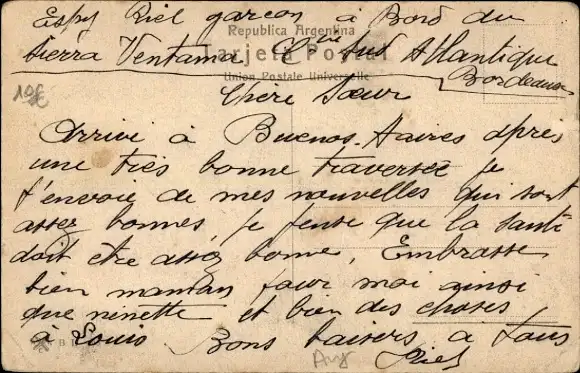 Espy Riel garçon à Bord du
Republica Argentina
Sierra Ventana Cie Sud Atlantique
Tarjeta Postal
Bordeaux
Union Postale Universelle
Chère Sœur
Arrivé à Buenos-Aaires après
une très bonne traversée je
t'envoie de mes nouvelles qui sont
assez bonnes, je pense que la santé
doit être assez bonne, Embrasse
bien maman pour moi ainsi
que ninette et bien des choses
à Louis Bons baisers a tous
Riel